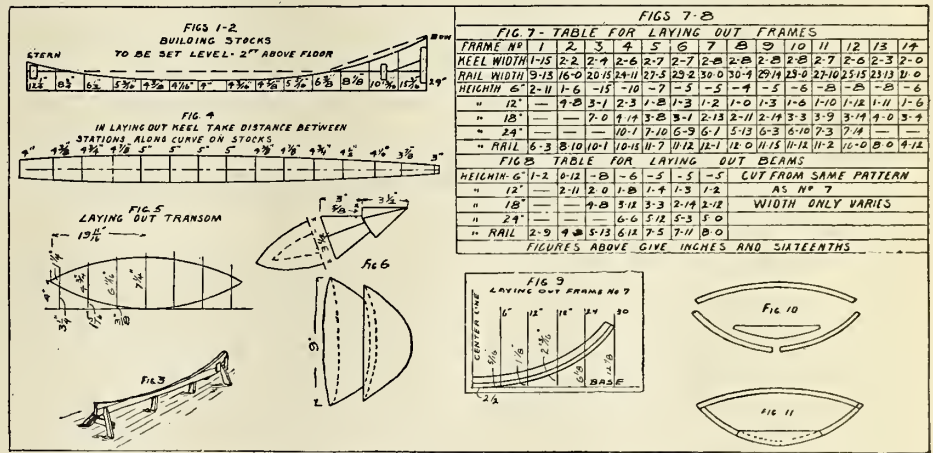 FIGS 1-2
BUILDING STOCKS
TO BE SET LEVEL - 2FT ABOVE FLOOR
STERN
BOW
24"
FIG. 4
IN LAYING OUT KEEL TAKE DISTANCE BETWEEN
STATIONS ALONG CURVE ON STOCKS
4" 4 3/8" 4 3/4" 4 7/8" 5" 5" 5" 5" 4 7/8" 4 3/4" 4 1/2" 4 1/4" 3 7/8" 3"
FIG. 5
LAYING OUT TRANSOM
19 11/16"
1 1/4"
4"
3 1/4"
4 3/4"
6 7/16"
7 1/4"
3/8"
3"
5/8"
3 1/2"
3 3/4"
FIG 6
9"
FIG 3
FIGS 7-8
FIG. 7 - TABLE FOR LAYING OUT FRAMES
FRAME No 1 2 3 4 5 6 7 8 9 10 11 12 13 14
KEEL WIDTH 1-15 2-2 2-4 2-6 2-7 2-7 2-8 2-8 2-8 2-8 2-7 2-6 2-3 2-0
RAIL WIDTH 9-13 16-0 20-15 24-11 27-5 29-2 30-0 30-4 29-14 29-0 27-10 25-15 23-13 21-0
HEIGHTH 6" 2-11 1-6 -15 -10 -7 -5 -5 -4 -5 -6 -8 -8 -8 -6
" 12" — 4-8 3-1 2-3 1-8 1-3 1-2 1-0 1-3 1-6 1-10 1-12 1-11 1-6
" 18" — — 7-0 4-14 3-8 3-1 2-13 2-11 2-14 3-3 3-9 3-14 4-0 3-4
" 24" 10-1 7-10 6-9 6-1 5-13 6-3 6-10 7-3 7-14 — —
" RAIL 6-3 8-10 10-1 10-15 11-7 11-12 12-1 12-0 11-15 11-12 11-2 10-0 8-0 4-12
FIG 8 TABLE FOR LAYING OUT BEAMS
HEIGHTH-6" 1-2 0-12 -8 -6 -5 -5 -5 CUT FROM SAME PATTERN
" 12" — 2-11 2-0 1-8 1-4 1-3 1-2 AS No 7
" 18" — — 4-8 3-12 3-3 2-14 2-12 WIDTH ONLY VARIES
" 24" — — 6-6 5-12 5-3 5-0
" RAIL 2-9 5-13 6-12 7-5 7-11 8-0
FIGURES ABOVE GIVE INCHES AND SIXTEENTHS
FIG 9
LAYING OUT FRAME No 7
CENTER LINE
6" 12" 18" 24 30
5/16
1 1/8"
2 13/16"
6 1/8
12 7/8
BASE
2 1/2
FIG 10
FIG 11